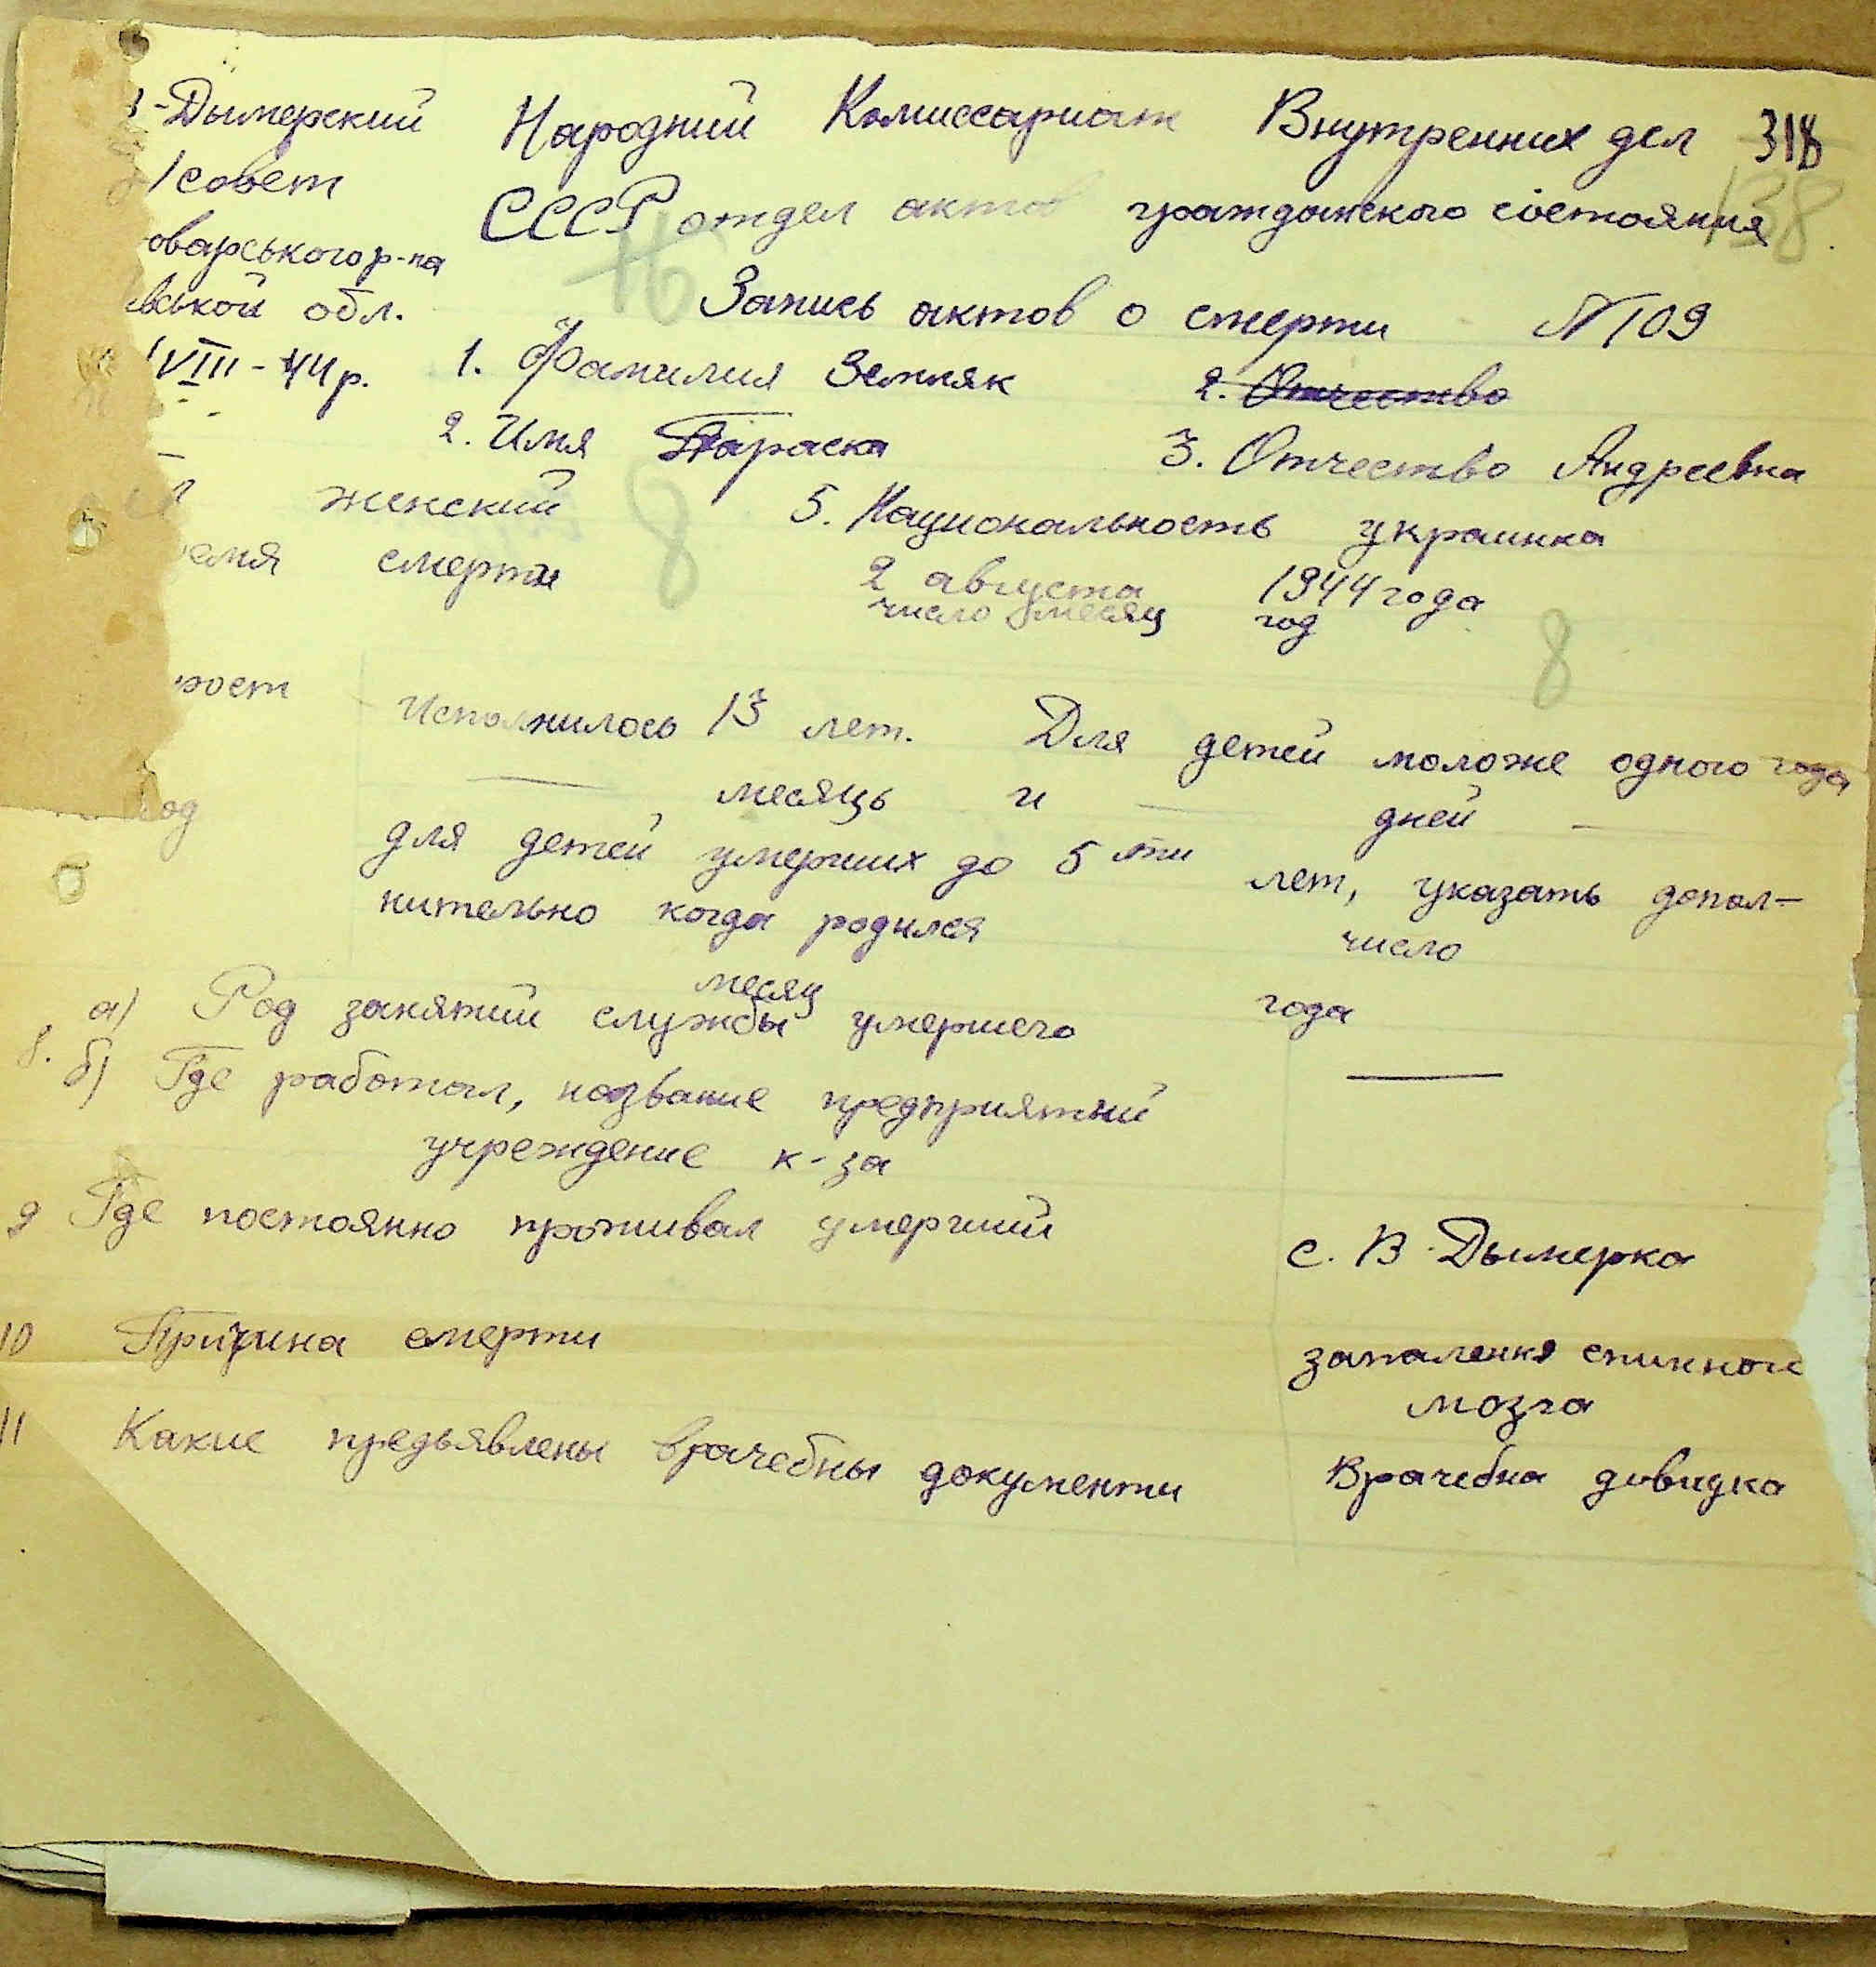 В-Дымерский
с/совет
оварського р-на
ївськой обл.
VIII - 44 р.
Народний Комиссариат Внутренних дел 318
СССР отдел актов гражданского состояния 138
Запись актов о смерти N 109
1. Фамилия Земляк 2. Отчество
2. Имя Параска 3. Отчество Андреевна
женский 5. Национальность украинка
емя смерти 2 августа 1944 года
число месяц год
8
8
раст Исполнилось 13 лет. Для детей моложе одного года
— месяць и — дней —
од для детей умерших до 5 яти лет, указать допол-
нительно когда родился число
месяц года
8. а) Род занятий службы умершего
б) Где работал, название предприятий —
учреждение к-за
9 Где постоянно проживал умерший с. В. Дымерка
10 Причина смерти запалення спинног
мозга
11 Какие предъявлены врачебны документи Врачебна довидка